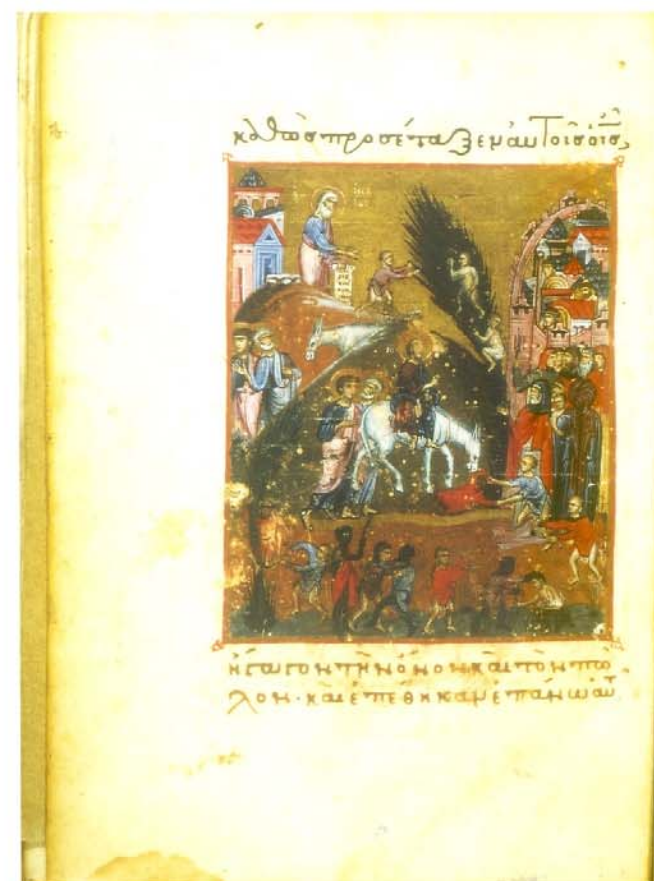 καθὼς προσέταξεν αυτοῖς ὁ ις,
ἤγαγον τὴν ὄνον καὶ τὸν πῶ
λον· καὶ ἐπέθηκαν ἐπάνω αὐτ